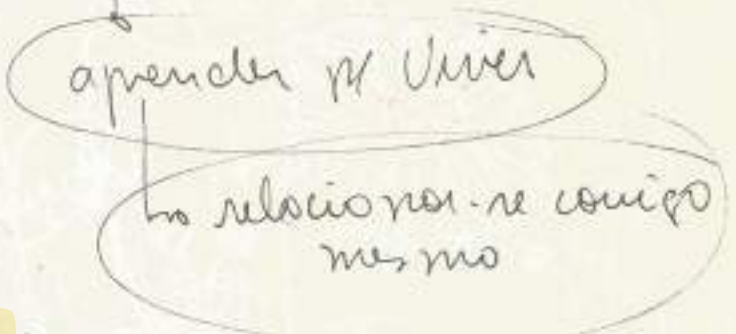 aprender p/ Viver
relacionar-se comigo
mesmo